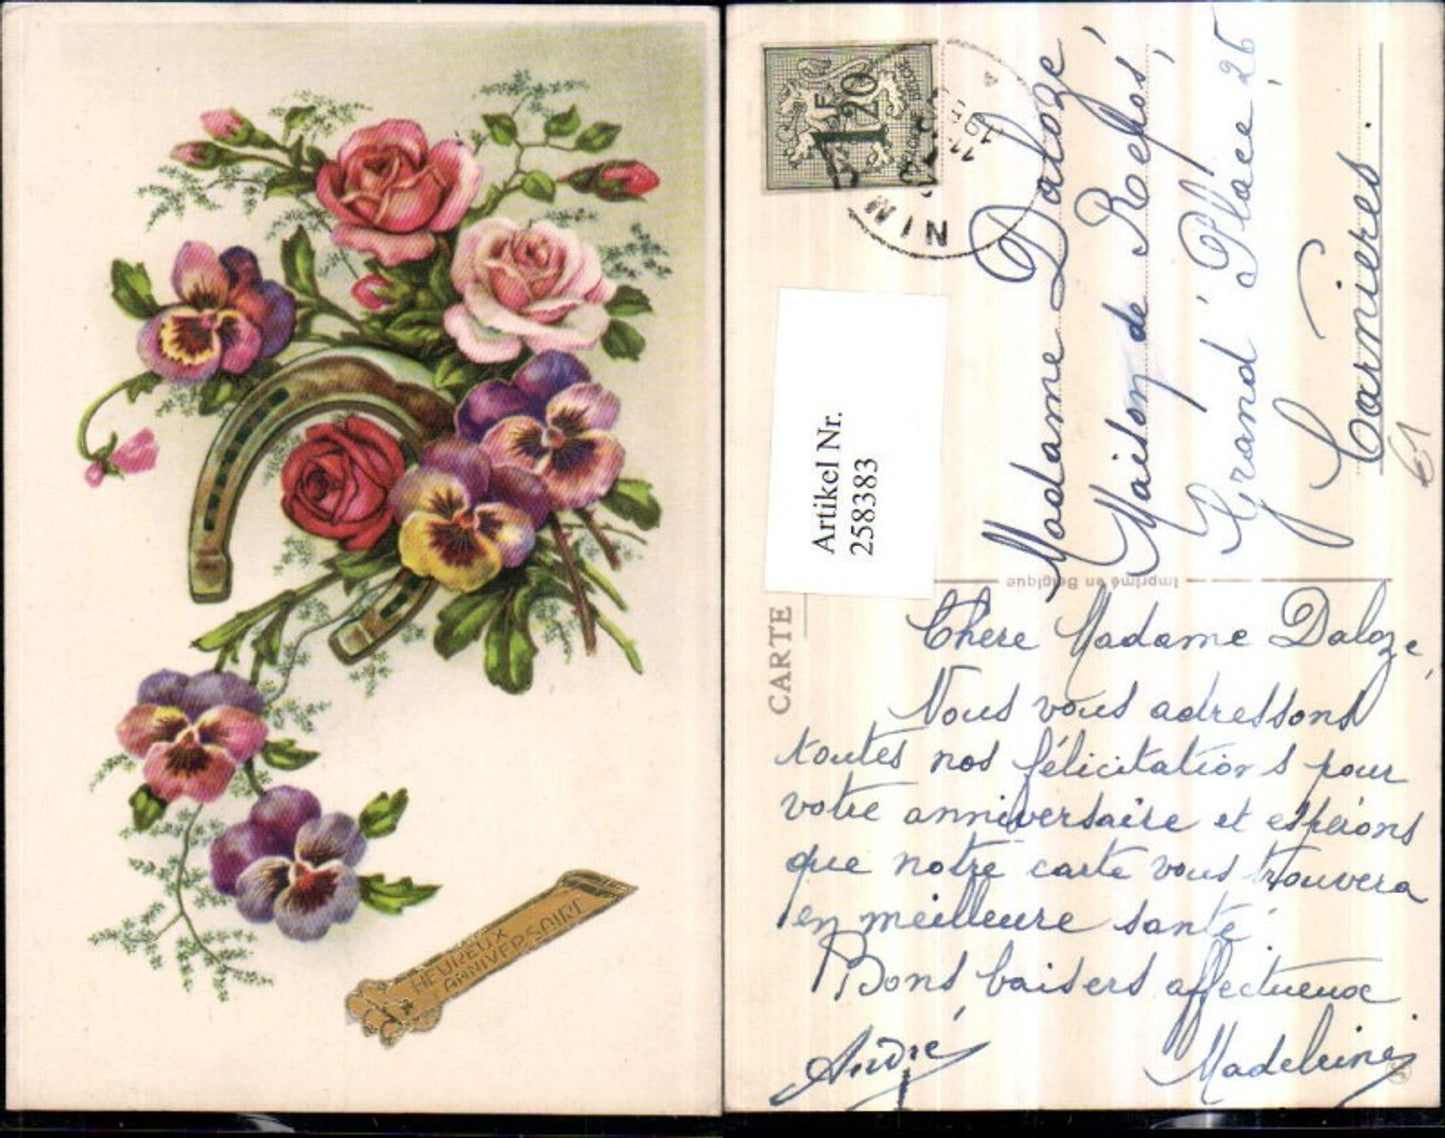 HEUREUX
ANNIVERSAIRE
1F20
BELGIE
NIM
11
Artikel Nr.
258383
Madame Daloze,
Maison de Repos,
Grand'Place, 26
Carnières.
€1
Imprimé en Belgique
CARTE
Chère Madame Daloze,
Nous vous adressons
toutes nos félicitations pour
votre anniversaire et espérons
que notre carte vous trouvera
en meilleure santé.
Bons baisers affectueux
André Madeleine